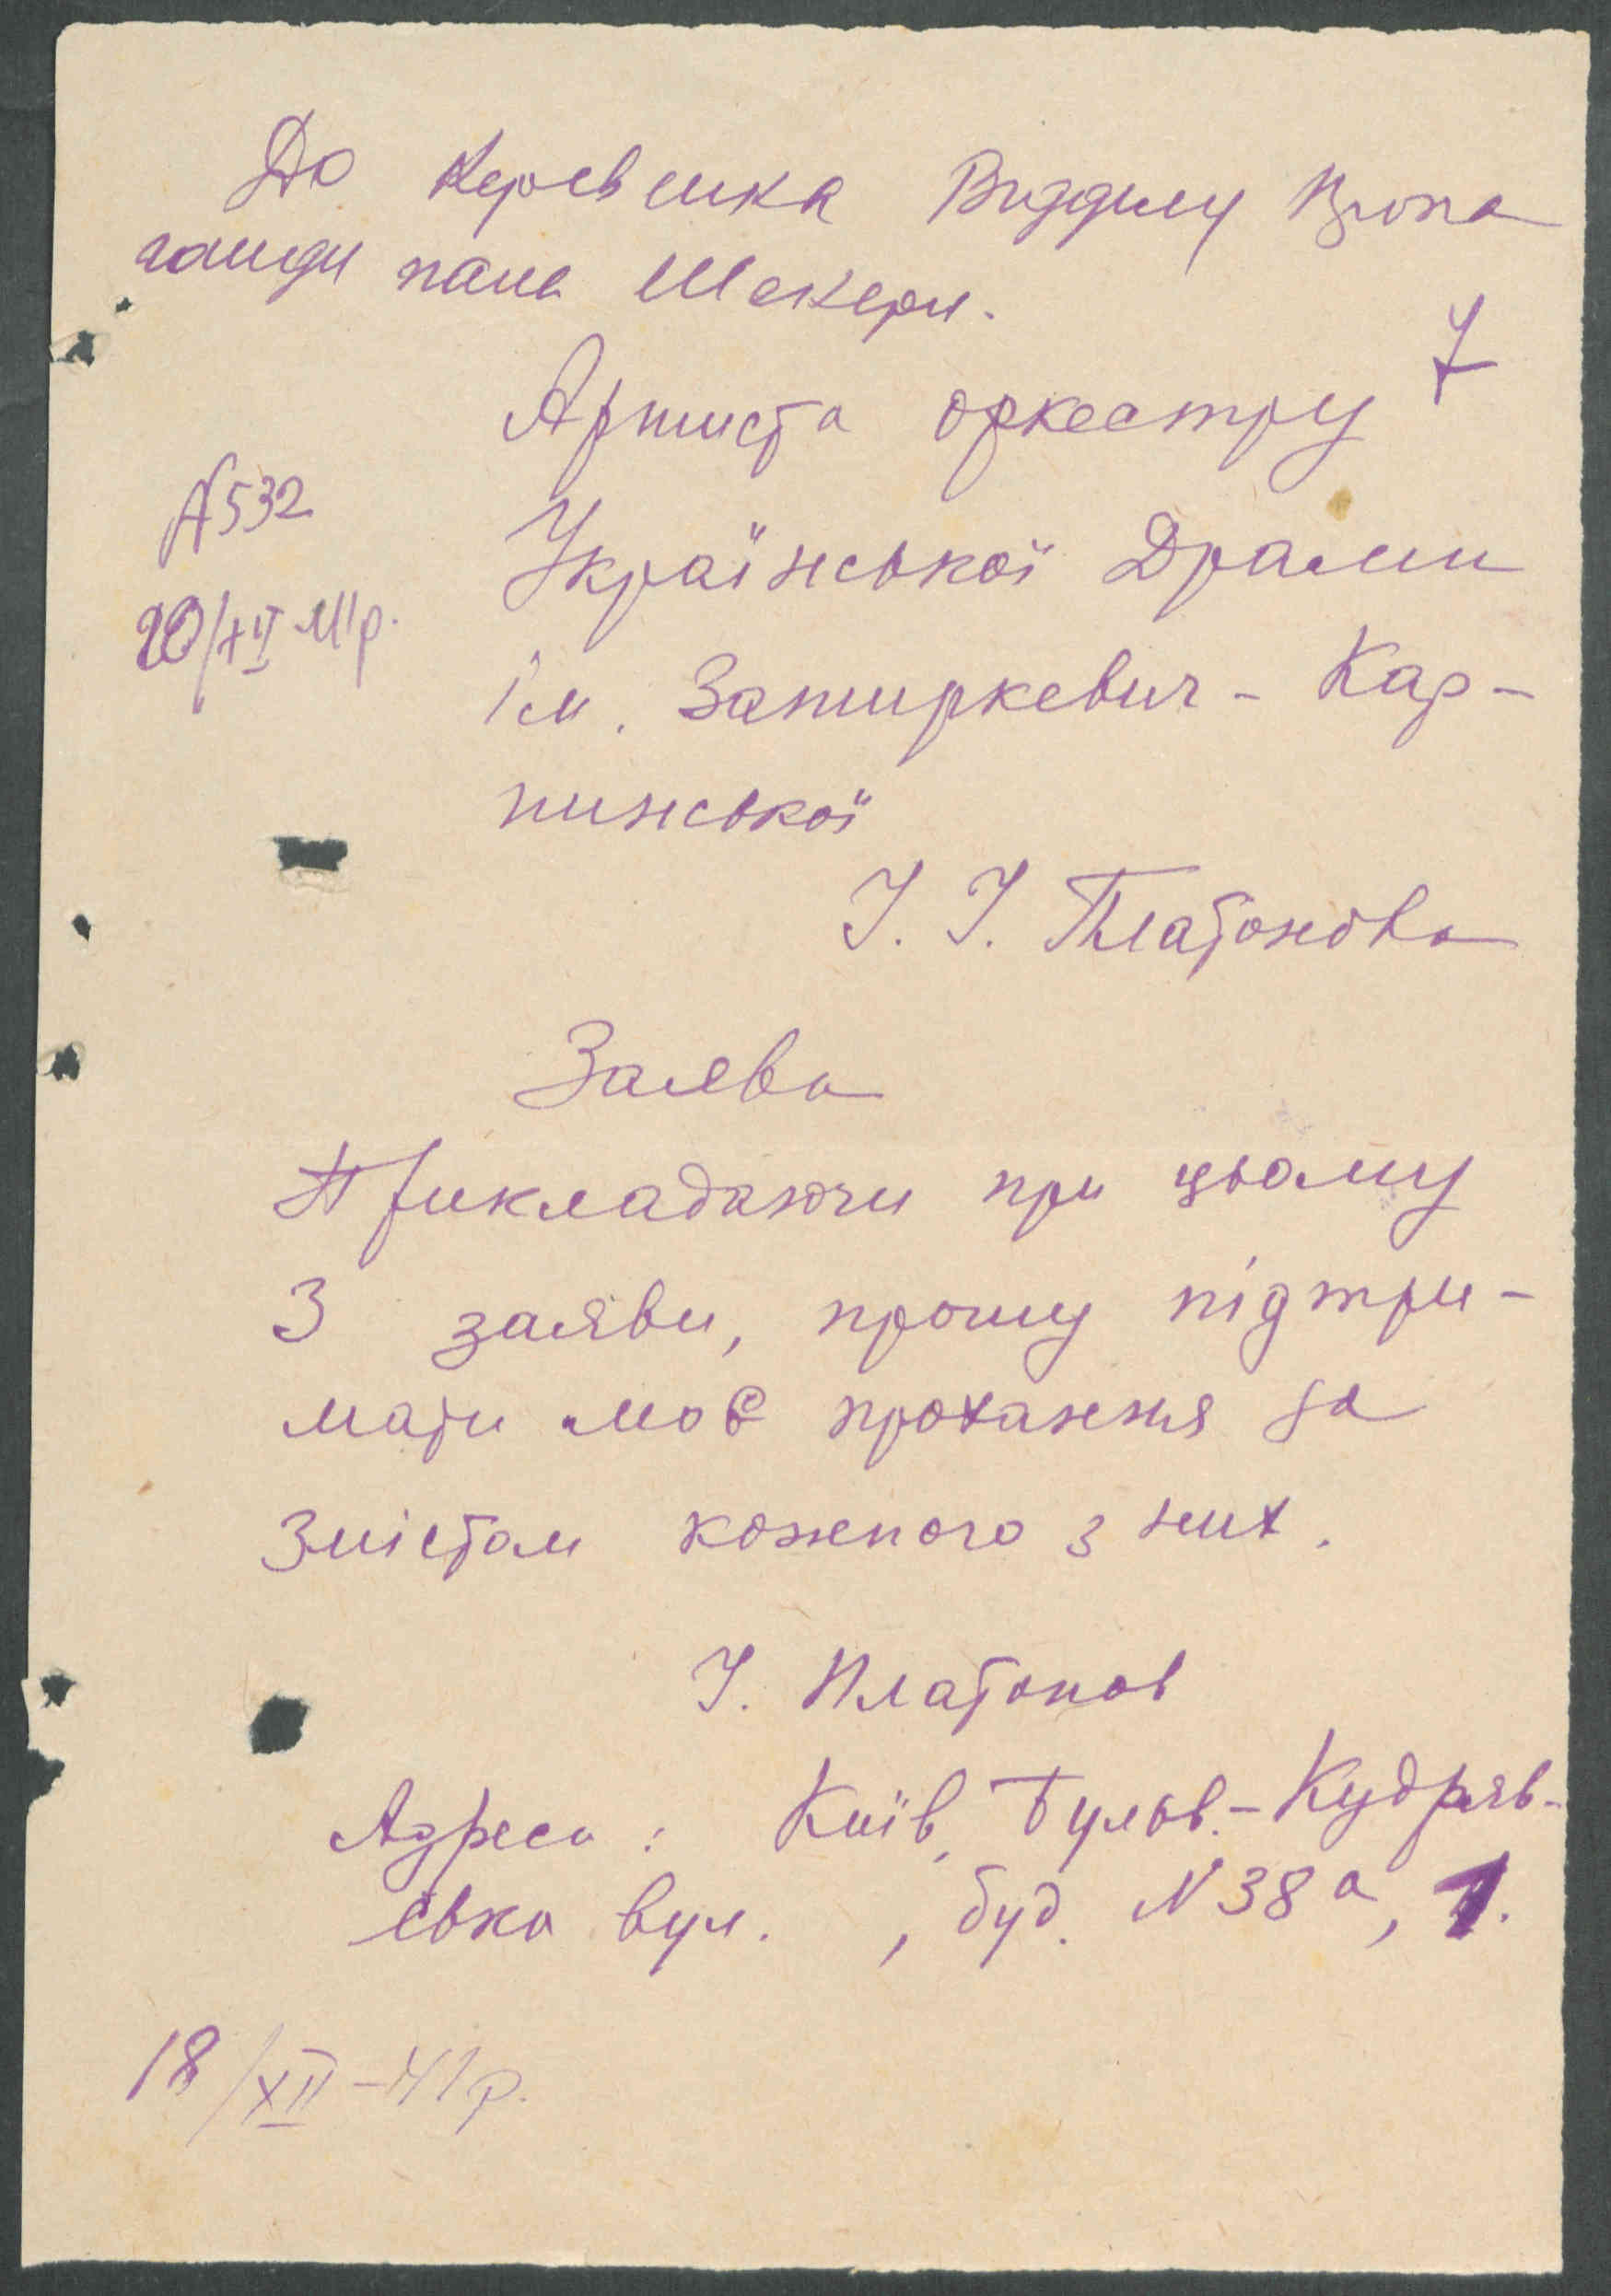 До Керовника Виддилу Пропа
ганди пана Шекери.
7
Артиста оркестру
№ 532
Української Драми
20/XII 41 р.
ім. Затиркевич - Кар-
пинської
І. І. Платонова
Заява
Прикладаючи при цьому
3 заяви, прошу підтри-
мати моє прохання за
змістом кожного з них.
І. Платонов
Адреса : Київ, Бульв.-Кудряв-
ська вул. , буд. № 38 а, 1.
18/XII - 41 р.